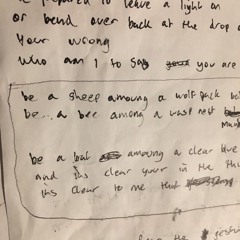 prepared to leave a light on
or bend over back at the drop o
Your wrong
Who am I to say you are
be a sheep amoung a wolf pack
be... a bee among a wasp nest
be a amoung a clear
and its clear your in the
its clear to me that